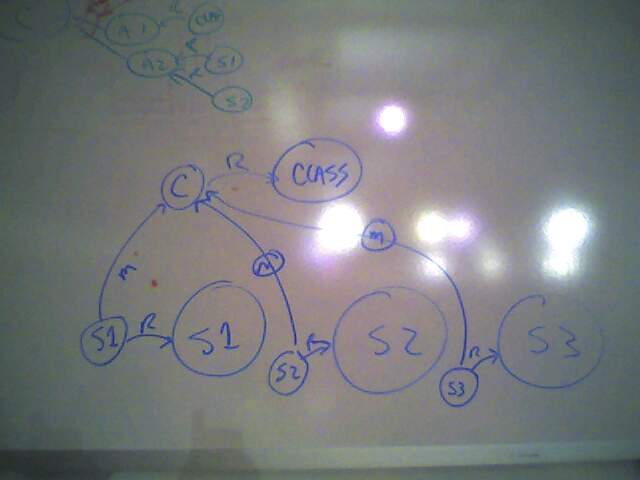 C
A1
R
A2
R
S1
R
S2
C
R
CLASS
m
m
m
S1
R
S1
S2
R
S2
S3
R
S3